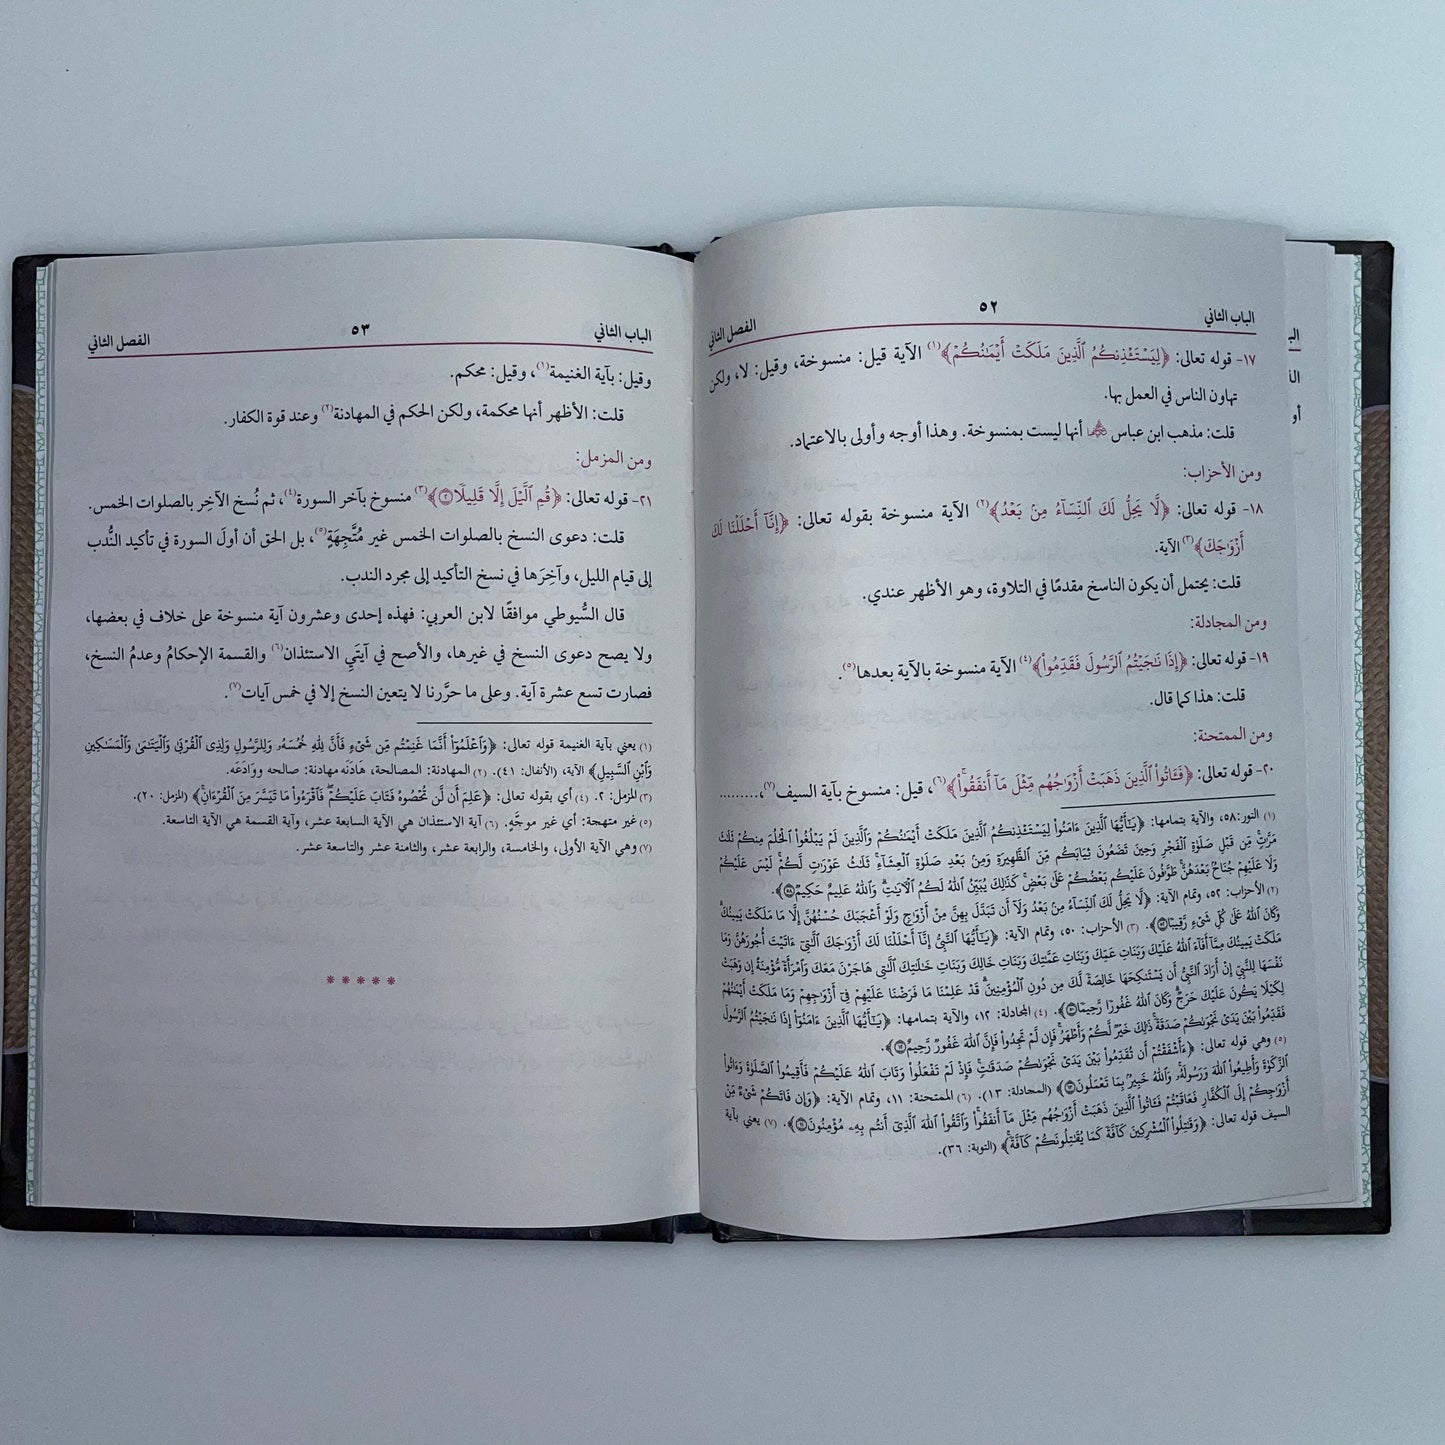 الباب الثاني ٥٢ الفصل الثاني
١٧- قوله تعالى: ﴿لِيَسْتَـْٔذِنكُمُ ٱلَّذِينَ مَلَكَتْ أَيْمَـٰنُكُمْ﴾(١) الآية قيل: منسوخة، وقيل: لا، ولكن
تهاون الناس في العمل بها.
قلت: مذهب ابن عباس رضي الله عنهما أنها ليست بمنسوخة. وهذا أوجه وأولى بالاعتماد.
ومن الأحزاب:
١٨- قوله تعالى: ﴿لَّا يَحِلُّ لَكَ ٱلنِّسَآءُ مِنۢ بَعْدُ﴾(٢) الآية منسوخة بقوله تعالى: ﴿إِنَّآ أَحْلَلْنَا لَكَ
أَزْوَٰجَكَ﴾(٣) الآية.
قلت: يحتمل أن يكون الناسخ مقدمًا في التلاوة، وهو الأظهر عندي.
ومن المجادلة:
١٩- قوله تعالى: ﴿إِذَا نَـٰجَيْتُمُ ٱلرَّسُولَ فَقَدِّمُوا۟﴾(٤) الآية منسوخة بالآية بعدها(٥).
قلت: هذا كما قال.
ومن الممتحنة:
٢٠- قوله تعالى: ﴿فَـَٔاتُوا۟ ٱلَّذِينَ ذَهَبَتْ أَزْوَٰجُهُم مِّثْلَ مَآ أَنفَقُوا۟﴾(٦)، قيل: منسوخ بآية السيف(٧)،.........
(١) النور:٥٨، والآية بتمامها: ﴿يَـٰٓأَيُّهَا ٱلَّذِينَ ءَامَنُوا۟ لِيَسْتَـْٔذِنكُمُ ٱلَّذِينَ مَلَكَتْ أَيْمَـٰنُكُمْ وَٱلَّذِينَ لَمْ يَبْلُغُوا۟ ٱلْحُلُمَ مِنكُمْ ثَلَـٰثَ
مَرَّٰتٍ مِّن قَبْلِ صَلَوٰةِ ٱلْفَجْرِ وَحِينَ تَضَعُونَ ثِيَابَكُم مِّنَ ٱلظَّهِيرَةِ وَمِنۢ بَعْدِ صَلَوٰةِ ٱلْعِشَآءِ ثَلَـٰثُ عَوْرَٰتٍ لَّكُمْ لَيْسَ عَلَيْكُمْ
وَلَا عَلَيْهِمْ جُنَاحٌۢ بَعْدَهُنَّ طَوَّٰفُونَ عَلَيْكُم بَعْضُكُمْ عَلَىٰ بَعْضٍ كَذَٰلِكَ يُبَيِّنُ ٱللَّهُ لَكُمُ ٱلْـَٔايَـٰتِ وَٱللَّهُ عَلِيمٌ حَكِيمٌ ٥٨﴾.
(٢) الأحزاب: ٥٢، وتمام الآية: ﴿لَّا يَحِلُّ لَكَ ٱلنِّسَآءُ مِنۢ بَعْدُ وَلَآ أَن تَبَدَّلَ بِهِنَّ مِنْ أَزْوَٰجٍ وَلَوْ أَعْجَبَكَ حُسْنُهُنَّ إِلَّا مَا مَلَكَتْ يَمِينُكَ
وَكَانَ ٱللَّهُ عَلَىٰ كُلِّ شَىْءٍ رَّقِيبًا ٥٢﴾. (٣) الأحزاب: ٥٠، وتمام الآية: ﴿يَـٰٓأَيُّهَا ٱلنَّبِىُّ إِنَّآ أَحْلَلْنَا لَكَ أَزْوَٰجَكَ ٱلَّـٰتِىٓ ءَاتَيْتَ أُجُورَهُنَّ وَمَا
مَلَكَتْ يَمِينُكَ مِمَّآ أَفَآءَ ٱللَّهُ عَلَيْكَ وَبَنَاتِ عَمِّكَ وَبَنَاتِ عَمَّـٰتِكَ وَبَنَاتِ خَالِكَ وَبَنَاتِ خَـٰلَـٰتِكَ ٱلَّـٰتِى هَاجَرْنَ مَعَكَ وَٱمْرَأَةً مُّؤْمِنَةً إِن وَهَبَتْ
نَفْسَهَا لِلنَّبِىِّ إِنْ أَرَادَ ٱلنَّبِىُّ أَن يَسْتَنكِحَهَا خَالِصَةً لَّكَ مِن دُونِ ٱلْمُؤْمِنِينَ قَدْ عَلِمْنَا مَا فَرَضْنَا عَلَيْهِمْ فِىٓ أَزْوَٰجِهِمْ وَمَا مَلَكَتْ أَيْمَـٰنُهُمْ
لِكَيْلَا يَكُونَ عَلَيْكَ حَرَجٌ وَكَانَ ٱللَّهُ غَفُورًا رَّحِيمًا ٥٠﴾. (٤) المجادلة: ١٢، والآية بتمامها: ﴿يَـٰٓأَيُّهَا ٱلَّذِينَ ءَامَنُوٓا۟ إِذَا نَـٰجَيْتُمُ ٱلرَّسُولَ
فَقَدِّمُوا۟ بَيْنَ يَدَىْ نَجْوَىٰكُمْ صَدَقَةً ذَٰلِكَ خَيْرٌ لَّكُمْ وَأَطْهَرُ فَإِن لَّمْ تَجِدُوا۟ فَإِنَّ ٱللَّهَ غَفُورٌ رَّحِيمٌ ١٢﴾.
(٥) وهي قوله تعالى: ﴿ءَأَشْفَقْتُمْ أَن تُقَدِّمُوا۟ بَيْنَ يَدَىْ نَجْوَىٰكُمْ صَدَقَـٰتٍ فَإِذْ لَمْ تَفْعَلُوا۟ وَتَابَ ٱللَّهُ عَلَيْكُمْ فَأَقِيمُوا۟ ٱلصَّلَوٰةَ وَءَاتُوا۟
ٱلزَّكَوٰةَ وَأَطِيعُوا۟ ٱللَّهَ وَرَسُولَهُۥ وَٱللَّهُ خَبِيرٌۢ بِمَا تَعْمَلُونَ ١٣﴾ (المجادلة: ١٣). (٦) الممتحنة: ١١، وتمام الآية: ﴿وَإِن فَاتَكُمْ شَىْءٌ مِّنْ
أَزْوَٰجِكُمْ إِلَى ٱلْكُفَّارِ فَعَاقَبْتُمْ فَـَٔاتُوا۟ ٱلَّذِينَ ذَهَبَتْ أَزْوَٰجُهُم مِّثْلَ مَآ أَنفَقُوا۟ وَٱتَّقُوا۟ ٱللَّهَ ٱلَّذِىٓ أَنتُم بِهِۦ مُؤْمِنُونَ ١١﴾. (٧) يعني بآية
السيف قوله تعالى: ﴿وَقَـٰتِلُوا۟ ٱلْمُشْرِكِينَ كَآفَّةً كَمَا يُقَـٰتِلُونَكُمْ كَآفَّةً﴾ (التوبة: ٣٦).
الباب الثاني ٥٣ الفصل الثاني
وقيل: بآية الغنيمة(١)، وقيل: محكم.
قلت: الأظهر أنها محكمة، ولكن الحكم في المهادنة(٢) وعند قوة الكفار.
ومن المزمل:
٢١- قوله تعالى: ﴿قُمِ ٱلَّيْلَ إِلَّا قَلِيلًا ٢﴾(٣) منسوخ بآخر السورة(٤)، ثم نُسخ الآخِر بالصلوات الخمس.
قلت: دعوى النسخ بالصلوات الخمس غير مُتَّجِهَةٍ(٥)، بل الحق أن أولَ السورة في تأكيد النُّدب
إلى قيام الليل، وآخِرَها في نسخ التأكيد إلى مجرد الندب.
قال السُّيوطي موافقًا لابن العربي: فهذه إحدى وعشرون آية منسوخة على خلاف في بعضها،
ولا يصح دعوى النسخ في غيرها، والأصح في آيتَيِ الاستئذان(٦) والقسمة الإحكامُ وعدمُ النسخ،
فصارت تسع عشرة آية. وعلى ما حرَّرنا لا يتعين النسخ إلا في خمس آيات(٧).
(١) يعني بآية الغنيمة قوله تعالى: ﴿وَٱعْلَمُوٓا۟ أَنَّمَا غَنِمْتُم مِّن شَىْءٍ فَأَنَّ لِلَّهِ خُمُسَهُۥ وَلِلرَّسُولِ وَلِذِى ٱلْقُرْبَىٰ وَٱلْيَتَـٰمَىٰ وَٱلْمَسَـٰكِينِ
وَٱبْنِ ٱلسَّبِيلِ﴾ الآية، (الأنفال: ٤١). (٢) المهادنة: المصالحة، هَادَنَه مهادنة: صالحه ووَادَعَه.
(٣) المزمل: ٢. (٤) أي بقوله تعالى: ﴿عَلِمَ أَن لَّن تُحْصُوهُ فَتَابَ عَلَيْكُمْ فَٱقْرَءُوا۟ مَا تَيَسَّرَ مِنَ ٱلْقُرْءَانِ﴾ (المزمل: ٢٠).
(٥) غير متهجة: أي غير موجَّهٍ. (٦) آية الاستئذان هي الآية السابعة عشر، وآية القسمة هي الآية التاسعة.
(٧) وهي الآية الأولى، والخامسة، والرابعة عشر، والثامنة عشر والتاسعة عشر.
*****